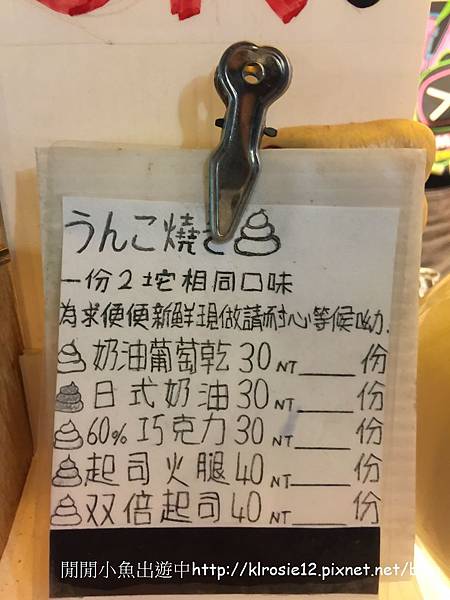 うんこ燒き
一份2坨相同口味
為求便便新鮮現做請耐心等候呦.
奶油葡萄乾30NT___份
日式奶油30NT___份
60%巧克力30NT___份
起司火腿40NT___份
双倍起司40NT___份
閒閒小魚出遊中http://klrosie12.pixnet.net/b